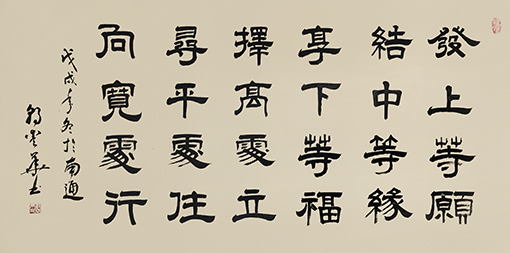 發上等願
結中等緣
享下等福
擇高處立
尋平處住
向寬處行
戊戌年冬於南通